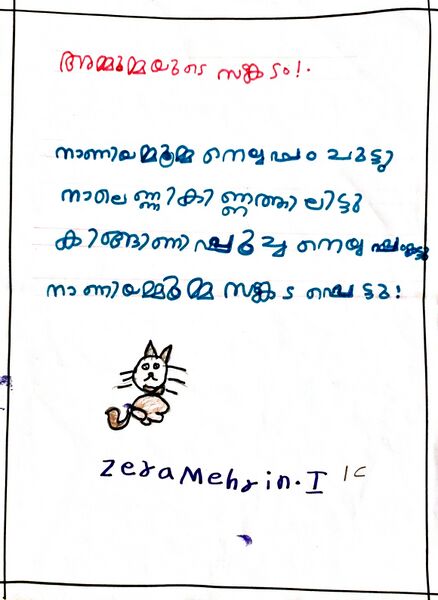 അമ്മൂമ്മയുടെ സങ്കടം!.
നാണിയമ്മൂമ്മ നെയ്യപ്പം ചുട്ടു
നാലെണ്ണം കിണ്ണത്തിലിട്ടു
കിങ്ങിണിപ്പൂച്ച നെയ്യപ്പം കട്ടു
നാണിയമ്മൂമ്മ സങ്കടപ്പെട്ടു!
Zera Mehrin. I 1C